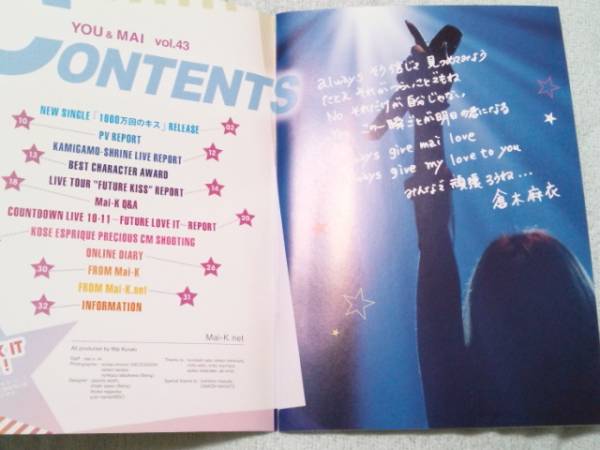 YOU & MAI vol.43
CONTENTS
NEW SINGLE「1000万回のキス」RELEASE
02
10
PV REPORT
KAMIGAMO-SHRINE LIVE REPORT
12
13
BEST CHARACTER AWARD
LIVE TOUR "FUTURE KISS" REPORT
14
18
Mai-K Q&A
COUNTDOWN LIVE 10-11 -FUTURE LOVE IT- REPORT
20
KOSE ESPRIQUE PRECIOUS CM SHOOTING
ONLINE DIARY
26
30
FROM Mai-K
FROM Mai-K.net
31
32
INFORMATION
Mai-K.net
All produced by Mai Kuraki
Staff
Photographer
Designer
Thanks to
Special thanks to
IT
!
always そう信じて見つめてみよう
たとえそれがつらいことでもね
No それだけが自分じゃない
この一瞬ごとが明日の君になる
always give mai love
always give my love to you
みんなで頑張ろうね…
倉木麻衣